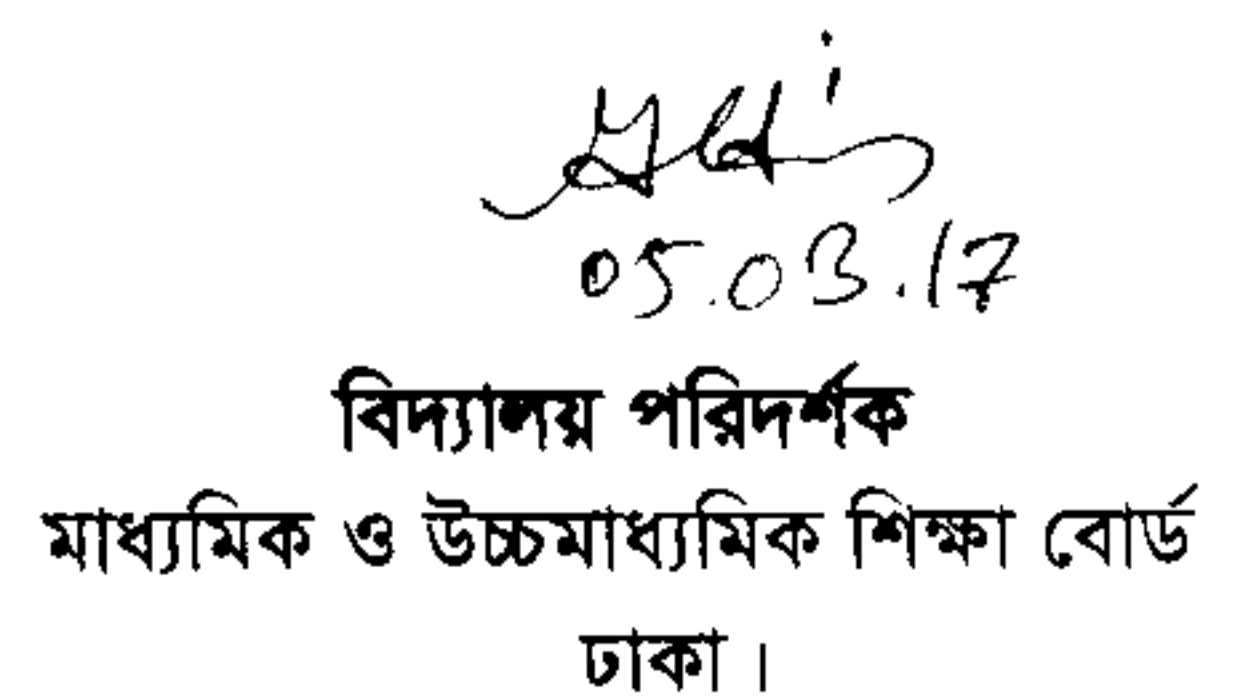 05.03.17
বিদ্যালয় পরিদর্শক
মাধ্যমিক ও উচ্চমাধ্যমিক শিক্ষা বোর্ড
ঢাকা ।